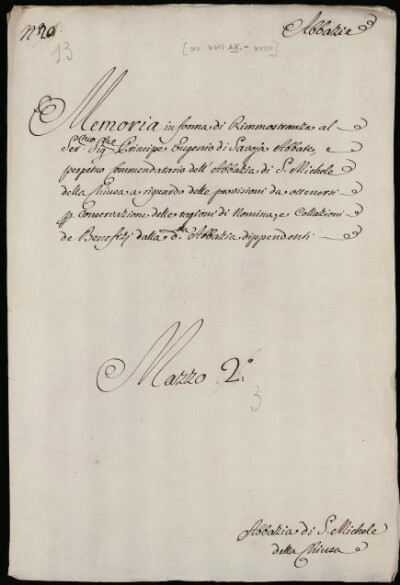 nº 20
13
Abbazie
Memoria in forma di Rimmostranza al
Ser.mo Sig.re Principe Eugenio di Savoja Abbate, e
perpetuo Commendatario dell' Abbazia di S. Michele
della Chiusa a riguardo delle provisioni da ottenersi
p. Conservazione delle ragioni di Nomina, e Collazioni
de Benefizj dalla d.a Abbazia dippendenti
Mazzo 2.º
3
Abbazia di S. Michele
della Chiusa